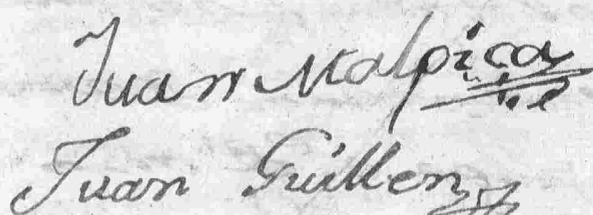 Juan Malpica
Juan Guillen